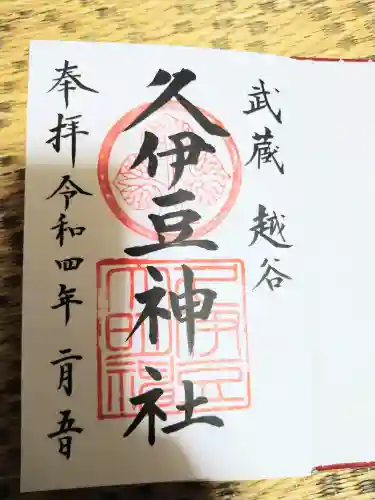 武蔵 越谷
久伊豆神社
奉拝 令和四年 二月 五日